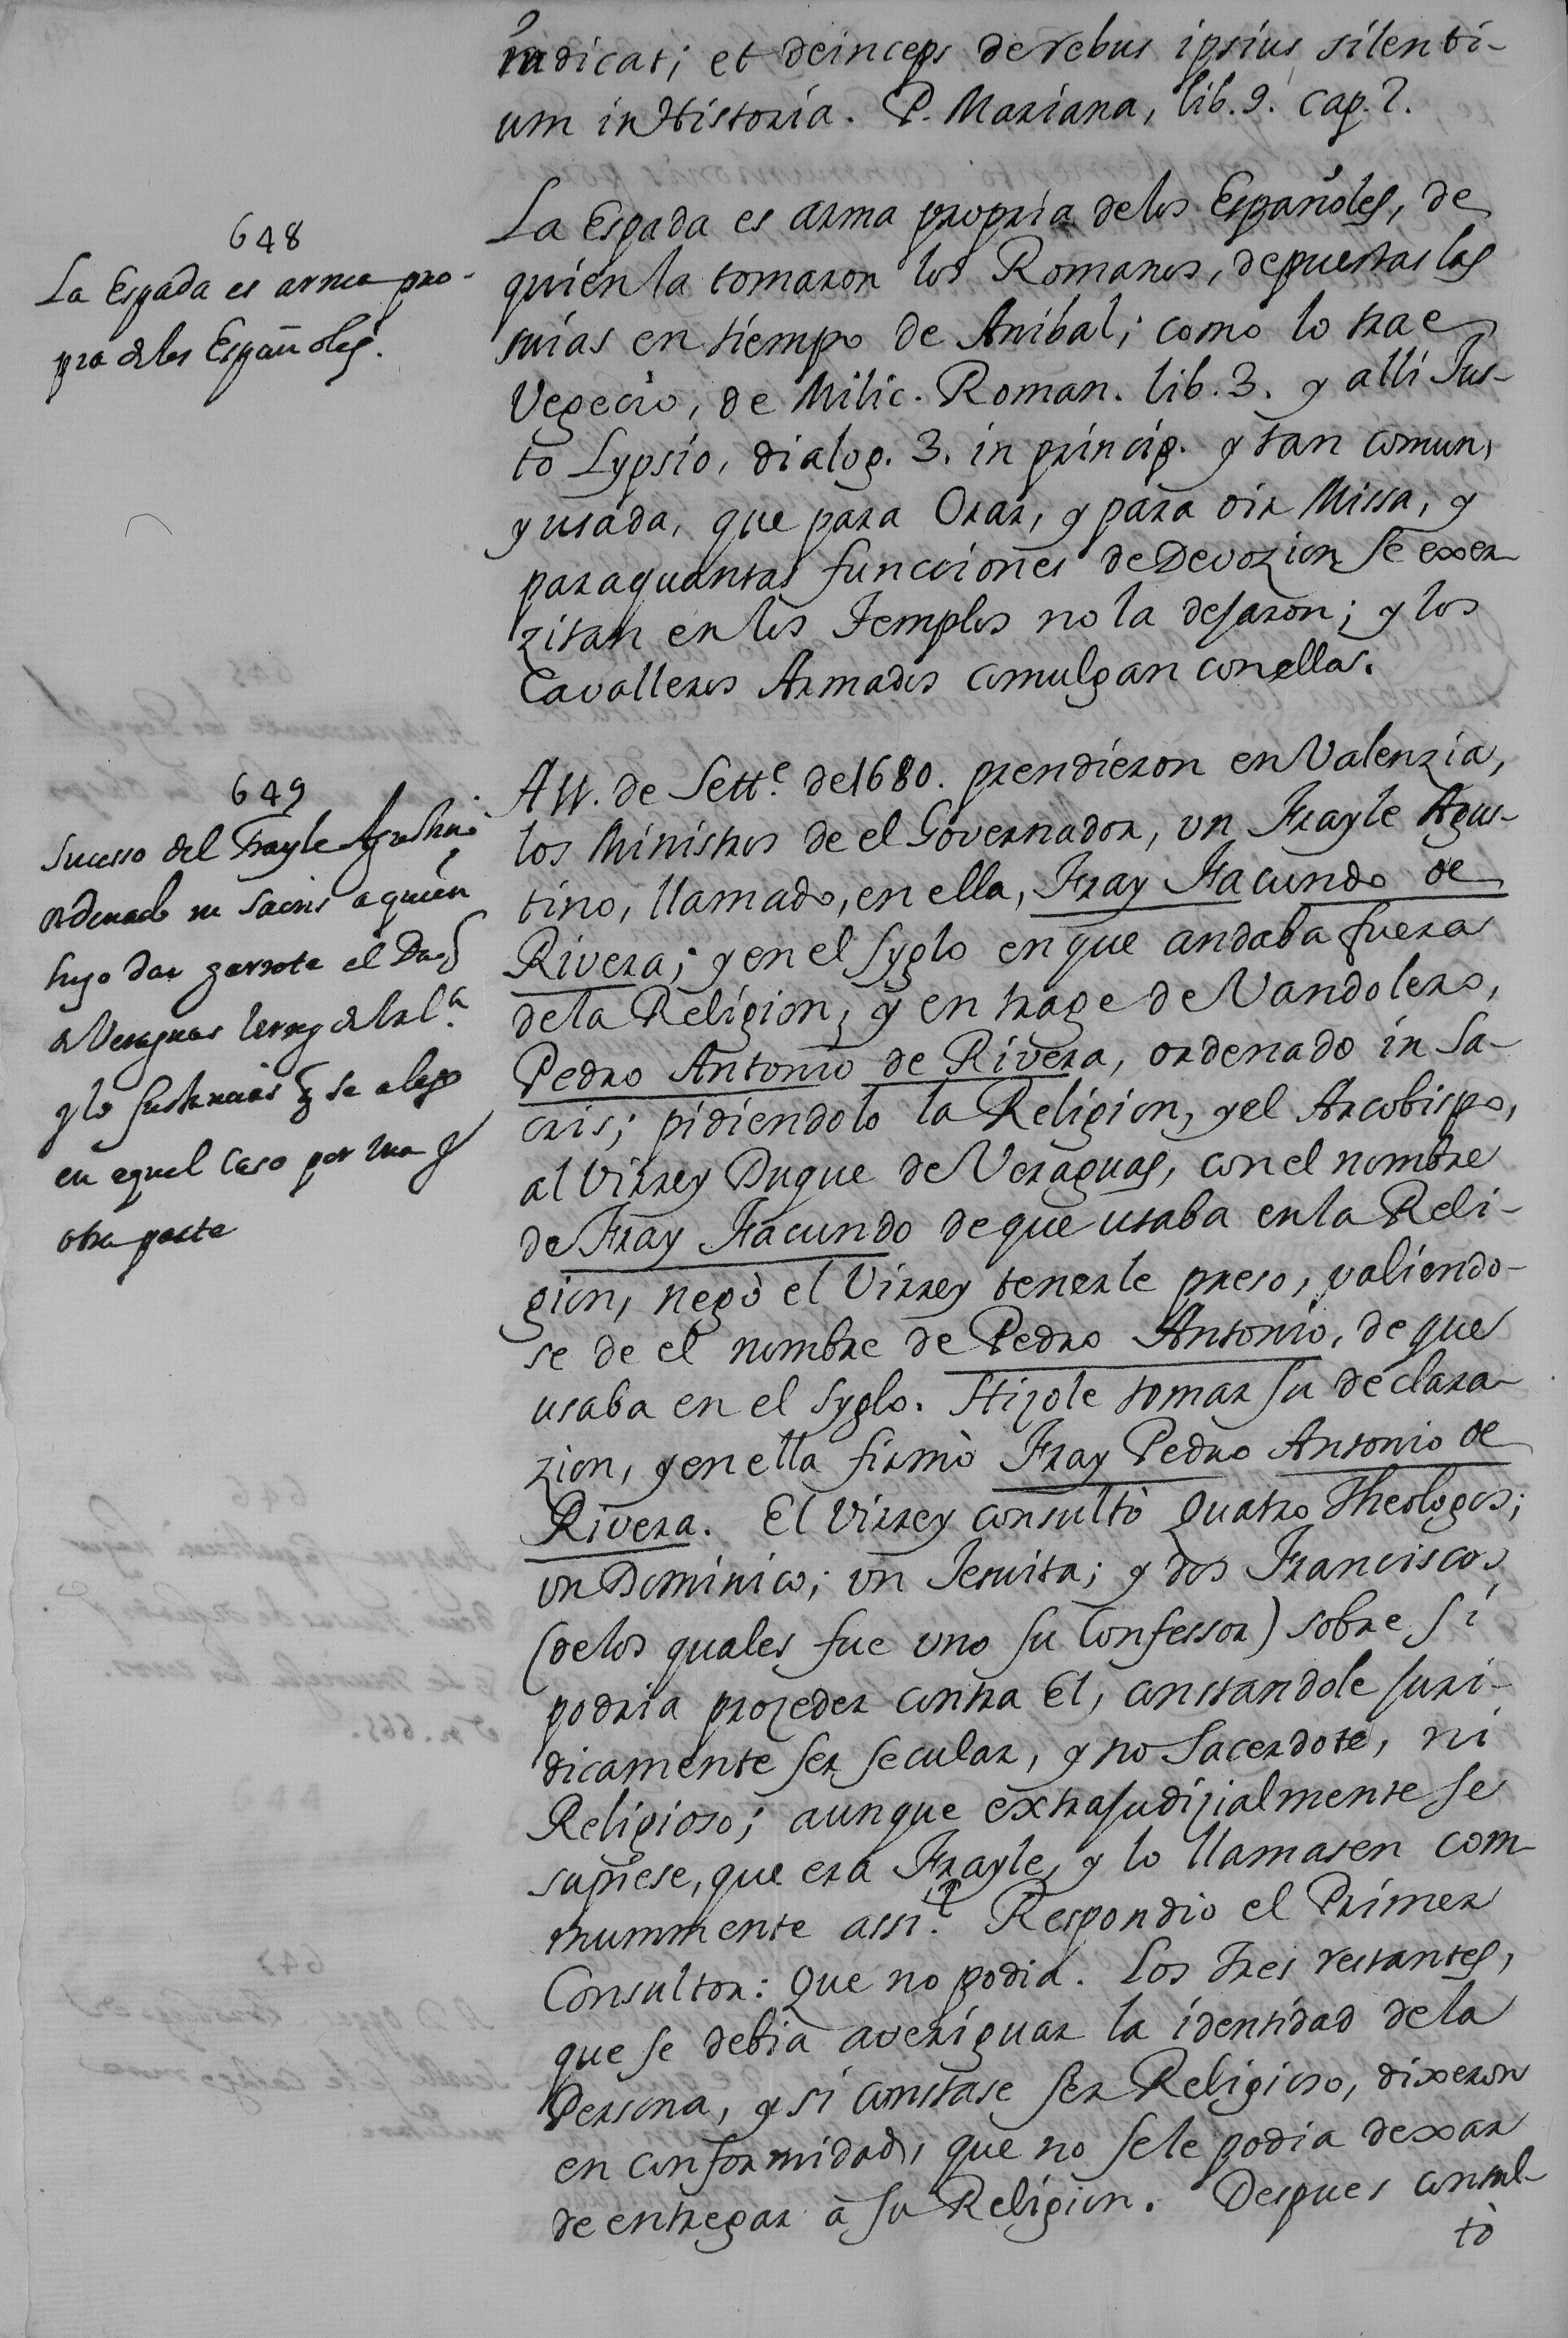 indicat; et deinceps de rebus ipsius silenti-
um in Historia. P. Mariana, lib. 9. cap. 7.
648
La Espada es arma pro-
pra de los Españoles.
La Espada es arma propria delos Españoles, de
quien la tomaron los Romanos, depuestas las
suias en tiempo de Anibal; como lo trae
Vegecio, de Milic. Roman. lib. 3. y alli Jus-
to Lypsio, dialog. 3. in princip. y tan comun,
y usada, que para Orar, y para oir Missa, y
para quantas funcciones de Devozion se exer-
zitan en los Templos no la dejaron; y los
Cavalleros Armados comulgan con ellas.
649
Sucesso del Frayle Agustino
ordenado in sacris a quien
hizo dar garrote el Duq
de Veraguas Virrey de Val.a
y lo sustancias q se alego
en aquel caso por una y
otra parte
A 11. de Sett.e de 1680. prendieron en Valenzia,
los Ministros de el Governador, un Frayle Agus-
tino, llamado, en ella, Fray Facundo de
Rivera; y en el syglo en que andaba fuera
de la Religion, y en trage de Vandolero,
Pedro Antonio de Rivera, ordenado in Sa-
cris; pidiendolo la Religion, y el Arcobispo,
al Virrey Duque de Veraguas, con el nombre
de Fray Facundo de que usaba en la Reli-
gion, negò el Virrey tenerle preso, valiendo-
se de el nombre de Pedro Antonio, de que
usaba en el syglo. Hizole tomar su declara-
zion, y en ella firmò Fray Pedro Antonio de
Rivera. El Virrey consultò quatro Theologos;
un Dominico; un Jesuita; y dos Franciscos,
(de los quales fue uno su Confessor) sobre si
podria prozeder contra El, constandole juri-
dicamente ser secular, y no Sacerdote, ni
Religioso; aunque extrajudizialmente se
supiese, que era Frayle, y lo llamasen com-
mummente assi? Respondio el Primer
Consultor: Que no podia. Los tres restantes,
que se debia averiguar la identidad de la
Persona, y si constase ser Religioso, dixeron
en conformidad, que no se le podia dexar
de entregar à su Religion. Despues consul-
tò